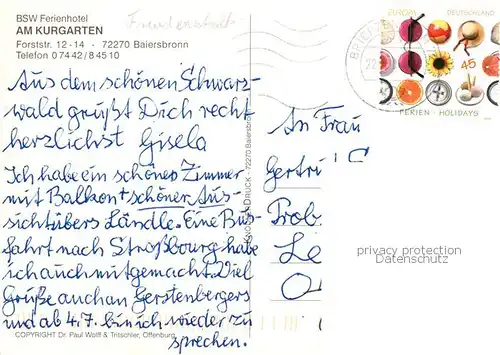 BSW Ferienhotel
AM KURGARTEN
Forststr. 12-14 · 72270 Baiersbronn
Telefon 0 74 42 / 8 45 10
Freudenstadt
Aus dem schönen Schwarz-
wald grüßt Dich recht
herzlichst Gisela
Ich habe ein schönes Zimmer
mit Balkon + schöner Aus-
sicht übers Ländle. Eine Bus-
fahrt nach Straßbourg habe
ich auch mitgemacht. Viel
Grüße auch an Gerstenbergers
und ab 4.7. bin ich wieder zu
sprechen.
COPYRIGHT Dr. Paul Wolff & Tritschler, Offenburg
DRUCK · 72270 Baiersbronn
BRIEF
22
EUROPA DEUTSCHLAND
45
FERIEN · HOLIDAYS
An Frau
Gertr
Prob
Le
privacy protection
Datenschutz